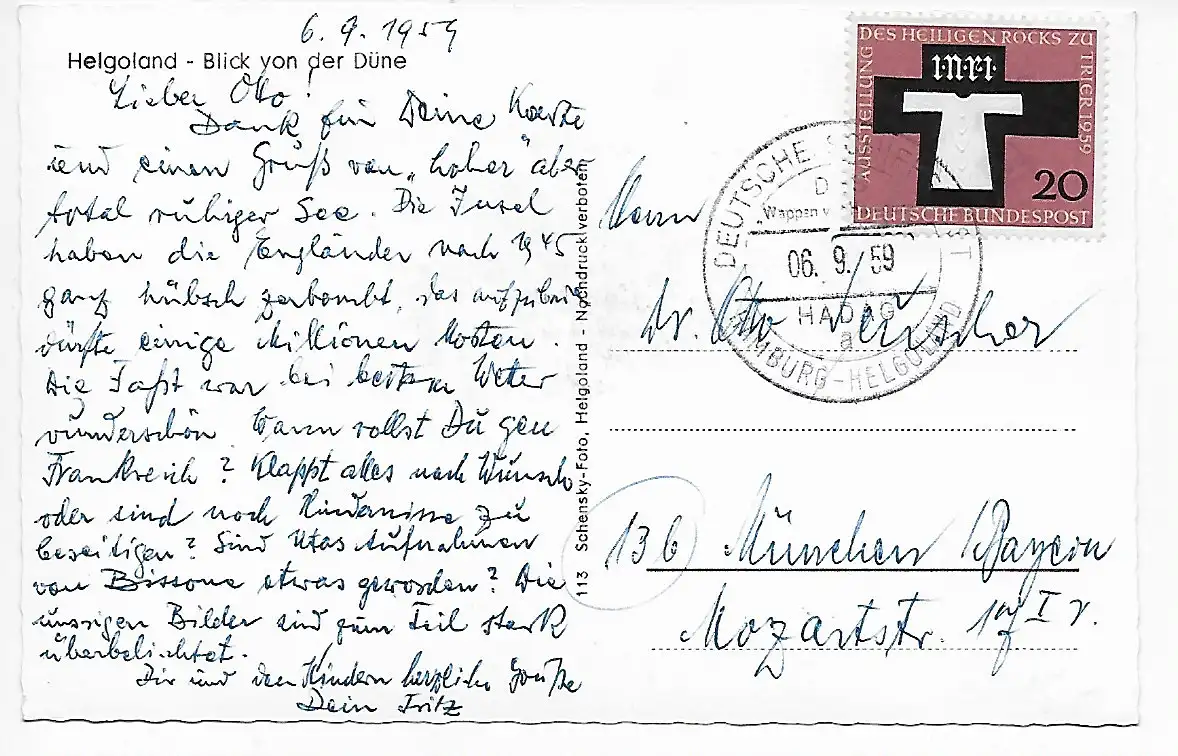 6.9.1959
Helgoland - Blick von der Düne
Lieber Otto!
Dank für Deine Karte
und einen Gruß von „hoher" aber
total ruhiger See. Die Insel
haben die Engländer nach 1945
ganz hübsch zerbombt, das
dürfte einige Millionen kosten.
Die Fahrt war bei bestem Wetter
wunderschön. Wann willst Du gen
Frankreich? Klappt alles nach Wunsch
oder sind noch Hindernisse zu
beseitigen? Sind Utas Aufnahmen
von etwas geworden? Die
unsrigen Bilder sind zum Teil stark
überbelichtet.
Dir und den Kindern herzliche Grüße
Dein Fritz
113 Schensky-Foto, Helgoland - Nachdruck verboten
AUSSTELLUNG DES HEILIGEN ROCKS ZU TRIER 1959
I·N·R·I
20
DEUTSCHE BUNDESPOST
DEUTSCHE
Wappen v
06. 9. 59
HADAG
a
HAMBURG-HELGOLAND
Herrn
Dr. Otto
13b) München Bayern
Mozartstr. I r.